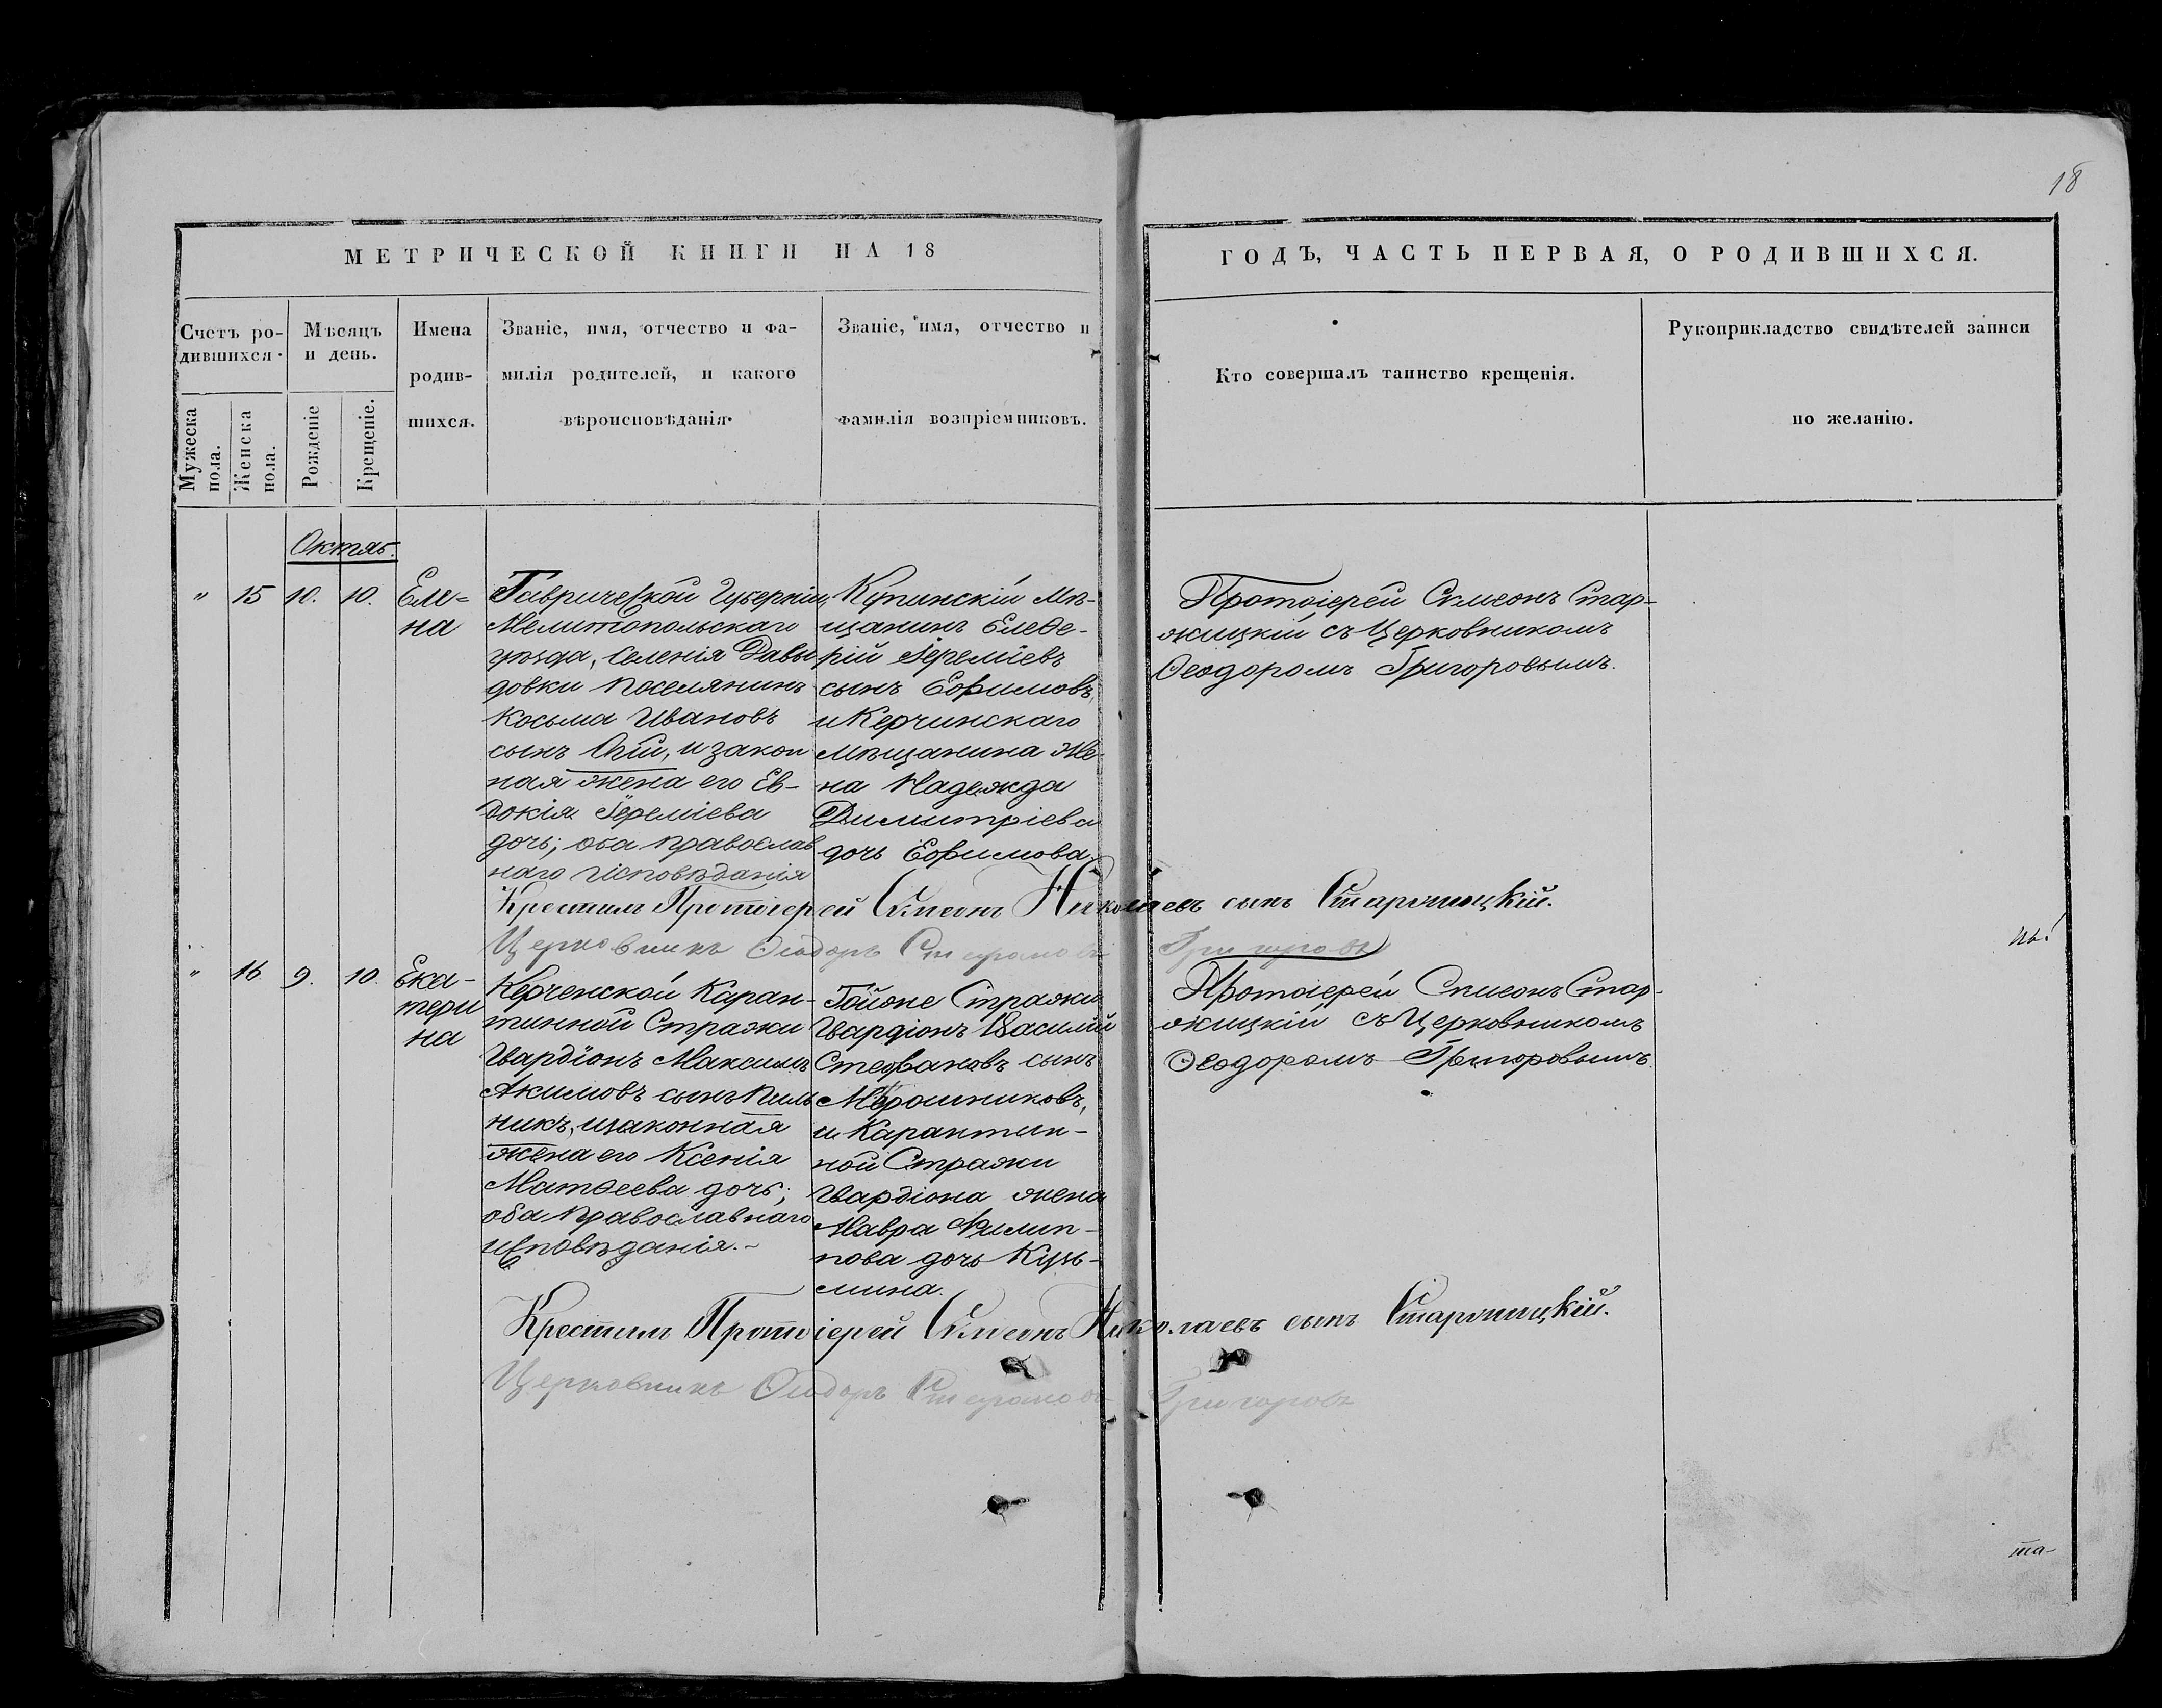 18
МЕТРИЧЕСКОЙ КНИГИ НА 18
ГОДЪ, ЧАСТЬ ПЕРВАЯ, О РОДИВШИХСЯ.
Счетъ ро-
дившихся.
Мужеска
пола.
Женска
пола.
Мѣсяцъ
и день.
Рожденіе
Крещеніе.
Имена
родив-
шихся.
Званіе, имя, отчество и фа-
милія родителей, и какого
вѣроисповѣданія.
Званіе, имя, отчество и
фамилія возпріемниковъ.
Кто совершалъ таинство крещенія.
Рукоприкладство свидѣтелей записи
по желанію.
Октяб.
" 15 10. 10.
Еле=
на
Таврической Губерніи,
Мелитопольскаго
уѣзда, Селенія Давы
довки поселянинъ
Косьма Ивановъ
сынъ и закон
ная жена его Ев-
докія Іереміева
дочь; оба православ
наго исповѣданія
мѣ-
щанинъ Елеѳе-
рій Іереміевъ
сынъ Ефимовъ,
и Керчинскаго
мѣщанина же-
на Надежда
Димитріева
дочь Ефимова.
Протоіерей Симеонъ Стар-
жицкій съ Церковникомъ
Ѳеодоромъ Григоровымъ.
Крестилъ Протоіерей Симеонъ Николаевъ сынъ Старжицкій.
Церковникъ Ѳеодоръ Стефановъ Григоровъ
" 16 9. 10.
Ека-
тери
на
Керченской Каран-
тинной Стражи
Гвардіонъ Максимъ
Акимовъ сынъ Пиль
никъ, и законная
жена его Ксенія
Матѳеева дочь;
оба православнаго
исповѣданія.-
Тойоже Стражи
Гвардіонъ Василій
Стефановъ сынъ
Мірошниковъ,
и Карантин-
ной Стражи
Гвардіона жена
Мавра Филип-
пова дочь Кузь-
мина.
Протоіерей Симеонъ Стар-
жицкій съ Церковникомъ
Ѳеодоромъ Григоровымъ.
Крестилъ Протоіерей Симеонъ Николаевъ сынъ Старжицкій.
Церковникъ Ѳеодоръ Стефановъ Григоровъ
та-